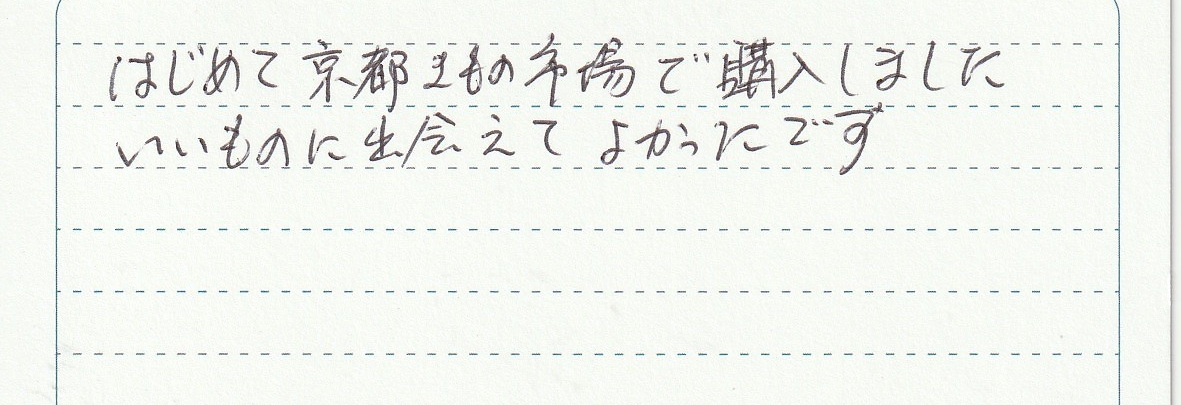 はじめて京都きもの市場で購入しました
いいものに出会えてよかったです